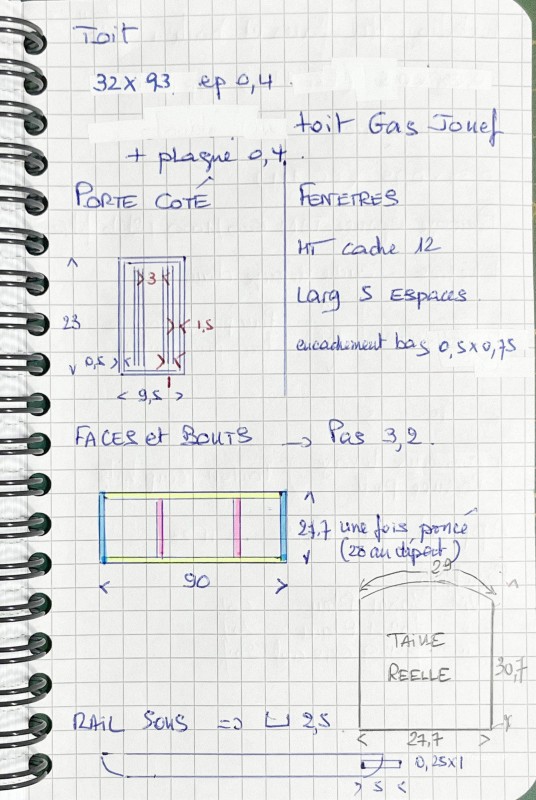 Toit
32 x 93 ep 0,4
toit Gas Jouef
+ plaque 0,4
PORTE COTÉ
FENETRES
HT cache 12
Larg 5 Espaces
encadrement bas 0,5 x 0,75
3
23
1,5
0,5
1
9,5
FACES et BOUTS → Pas 3,2
27,7 une fois poncé
(28 au départ)
90
29
TAILLE
REELLE
30,7
27,7
RAIL SOUS => 2,5
0,25x1
5